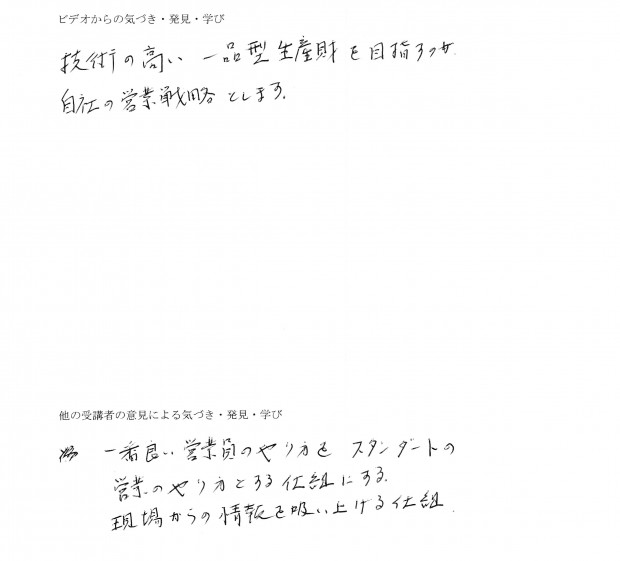 ビデオからの気づき・発見・学び
技術の高い 一品型生産財を目指すのが
自社の営業戦略とします.
他の受講者の意見による気づき・発見・学び
一番良い営業員のやり方を スタンダートの
営業のやり方とする仕組にする.
現場からの情報を吸い上げる仕組.